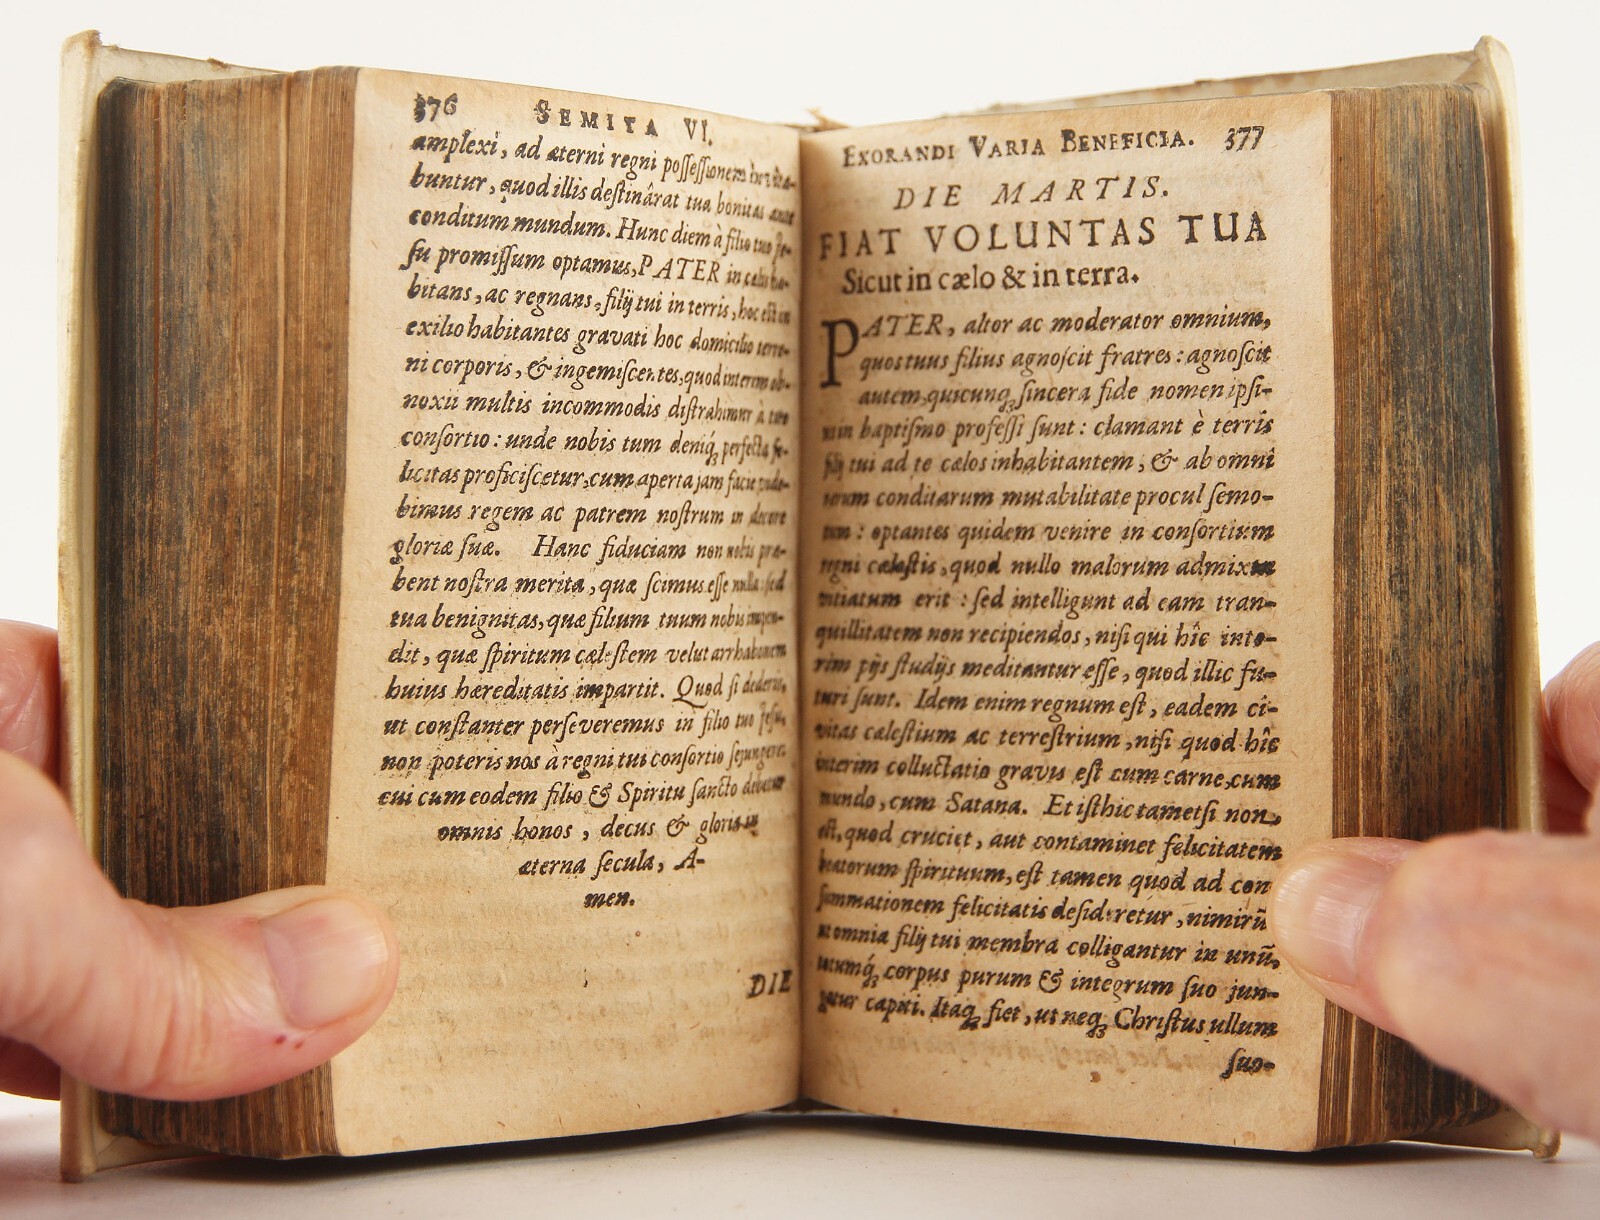 376 SEMITA VI.
amplexi, ad æterni regni poſſeſſionem
buntur, quod illis deſtinârat tua bonitas ante
conditum mundum. Hunc diem à filio tuo Je-
ſu promiſſum optamus, PATER in cælis ha-
bitans, ac regnans, filij tui in terris, hoc eſt in
exilio habitantes gravati hoc domicilio terre-
ni corporis, & ingemiſcentes, quod interim ob-
noxii multis incommodis diſtrahimur à tuo
conſortio: unde nobis tum deniq́; perfecta fe-
licitas proficiſcetur, cum aperta jam facie vide-
bimus regem ac patrem noſtrum in decore
gloriæ ſuæ. Hanc fiduciam non nobis præ-
bent noſtra merita, quæ ſcimus eſſe nulla: ſed
tua benignitas, quæ filium tuum nobis impen-
dit, quæ ſpiritum cæleſtem velut arrhabonem
huius hæreditatis impartit. Quod ſi dederis,
ut conſtanter perſeveremus in filio tuo Jeſu,
non poteris nos à regni tui conſortio ſejungere:
cui cum eodem filio & Spiritu ſancto debetur
omnis honos, decus & gloria in
æterna ſecula, A-
men.
DIE
EXORANDI VARIA BENEFICIA. 377
DIE MARTIS.
FIAT VOLUNTAS TUA
Sicut in cælo & in terra.
PATER, altor ac moderator omnium,
quos tuus filius agnoſcit fratres: agnoſcit
autem quicunq; ſincera fide nomen ipſi-
in baptiſmo profeſſi ſunt: clamant è terris
filij tui ad te cælos inhabitantem, & ab omni
rerum conditarum mutabilitate procul ſemo-
tum: optantes quidem venire in conſortium
regni cæleſtis, quod nullo malorum admixtu
vitiatum erit: ſed intelligunt ad eam tran-
quillitatem non recipiendos, niſi qui hîc inte-
rim pijs ſtudijs meditantur eſſe, quod illic fu-
turi ſunt. Idem enim regnum eſt, eadem ci-
vitas cæleſtium ac terreſtrium, niſi quod hîc
interim colluctatio gravis eſt cum carne, cum
mundo, cum Satana. Et iſthic tametſi non
eſt, quod cruciet, aut contaminet felicitatem
beatorum ſpirituum, eſt tamen quod ad con
ſummationem felicitatis deſideretur, nimirū
ut omnia filij tui membra colligantur in unū,
totumq́; corpus purum & integrum ſuo jun-
gatur capiti. Itaq; fiet, ut neq; Chriſtus ullum
ſuo-